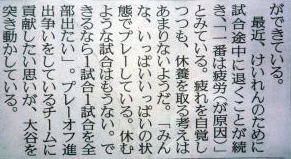 ができている。
　最近、けいれんのために
試合途中に退くことが続
き、「一番は疲労(が原因)」
とみている。疲れを自覚し
つつも、休養を取る考えは
あまりないようだ。「みん
な、いっぱいいっぱいの状
態でプレーしている。休む
ような試合はもうない。で
きるなら1試合1試合を全
部出たい」。プレーオフ進
出争いをしているチームに
貢献したい思いが、大谷を
突き動かしている。